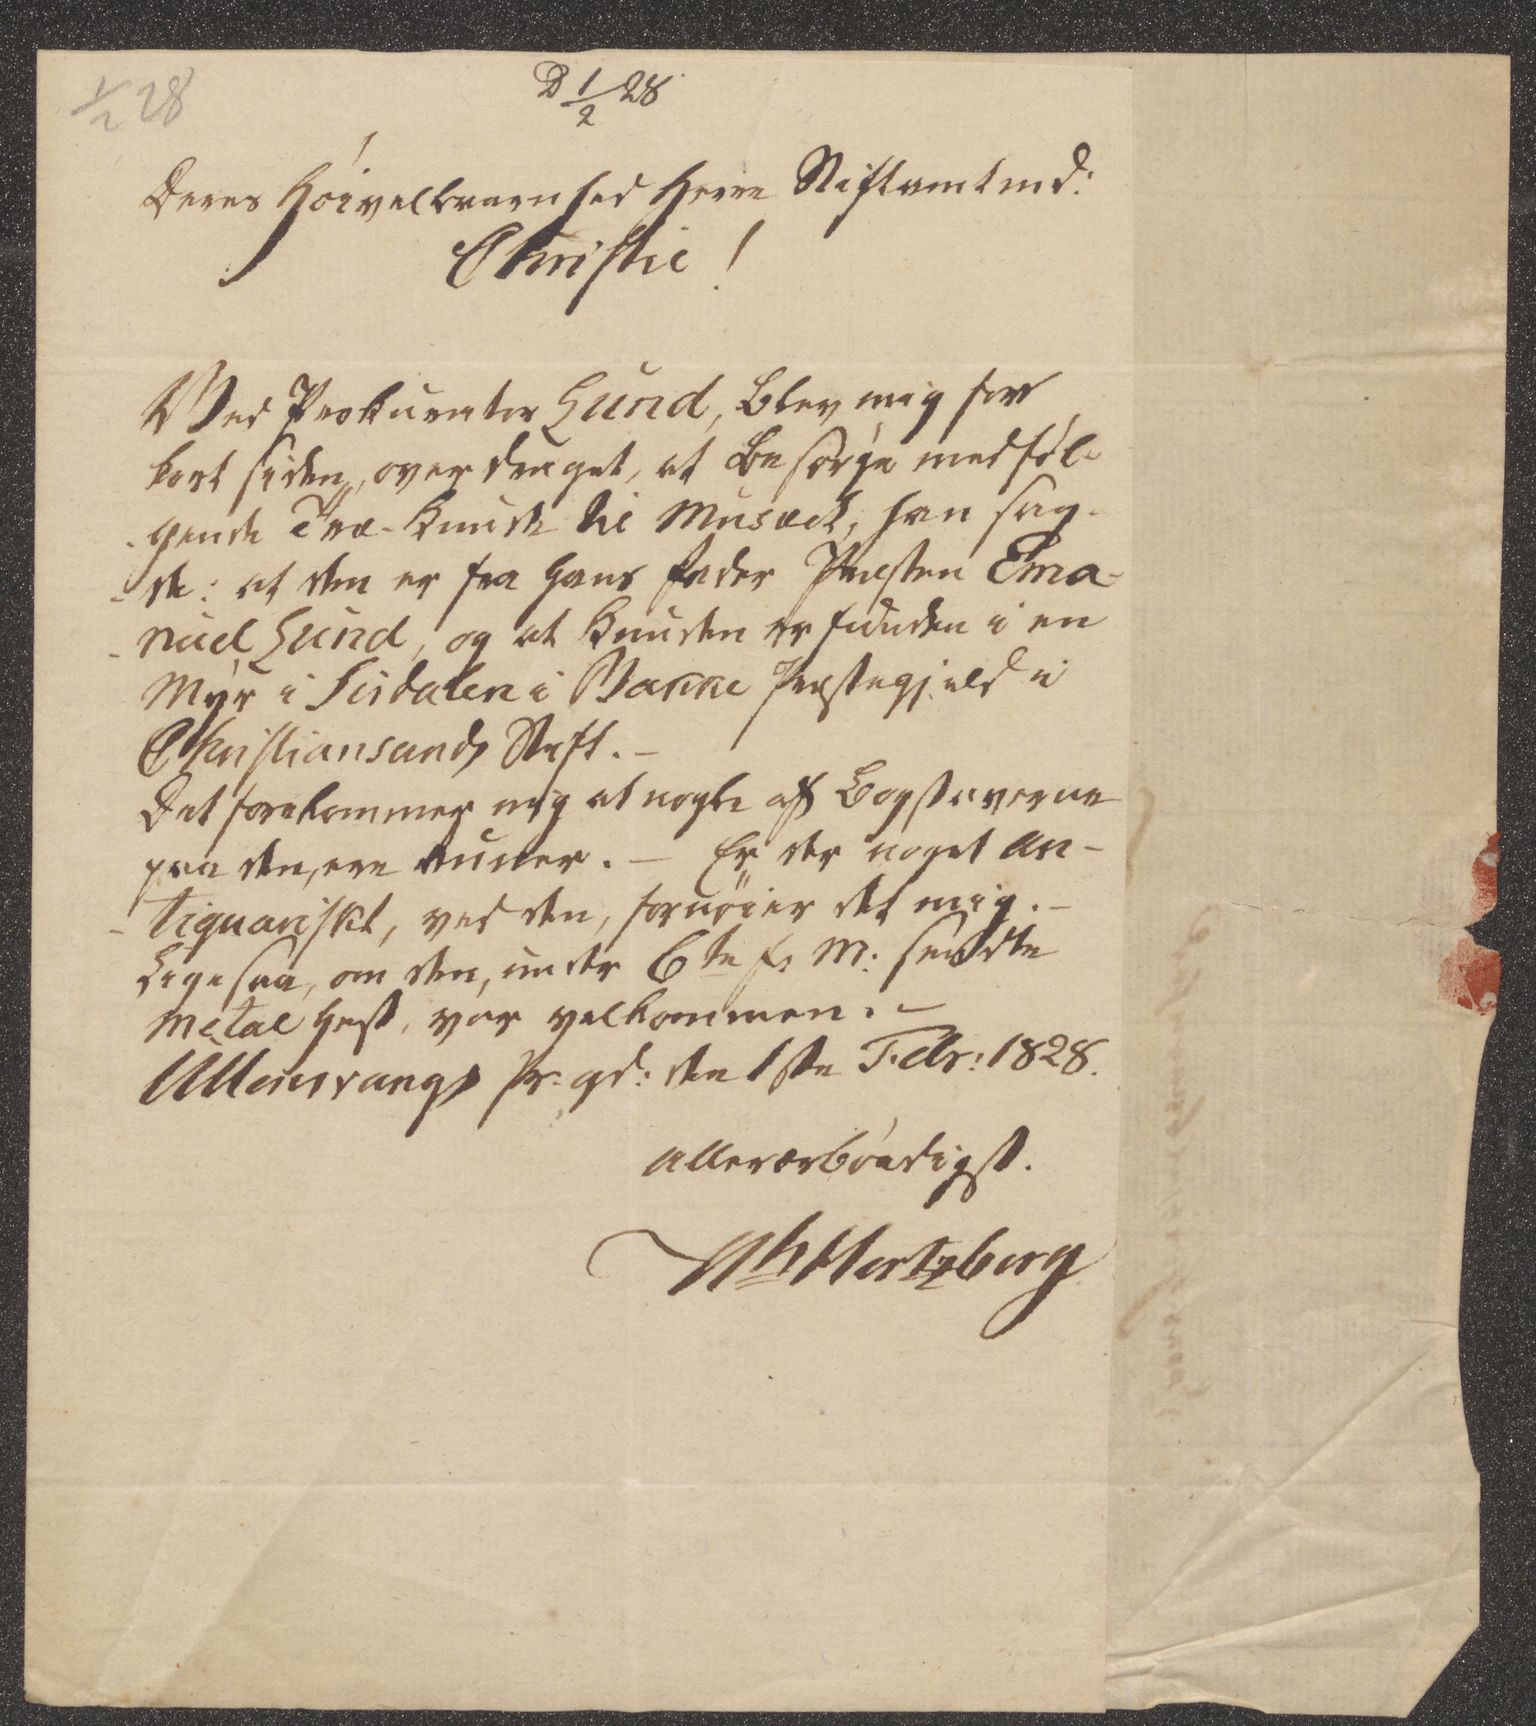 1/2 28
D 1/2 28
Deres Höivelbaarenhed Herre Stiftamtmd:
Christie!
Ved Prokurator Lund, blev mig for
kort siden, overdraget, at besørge medföl-
gende Træ-Knude til Musæet, han sag-
de: at den er fra hans Fader Præsten Ema-
nuel Lund, og at Knuden er funden i en
Myr i Sirdalen i Bakke Præstegjeld i
Christiansands Stift. -
Det forekommer mig at nogle af Bogstaverne
paa den, ere Runer. - Er der noget An-
tiquariskt, ved den, fornöier det mig. -
Ligesaa, om den, under 6te f: M: sendte
Metal Hest, var velkommen. -
Ullensvangs Pr: gd: den 1ste Febr: 1828.
Allerærbödigst.
N Hertzberg